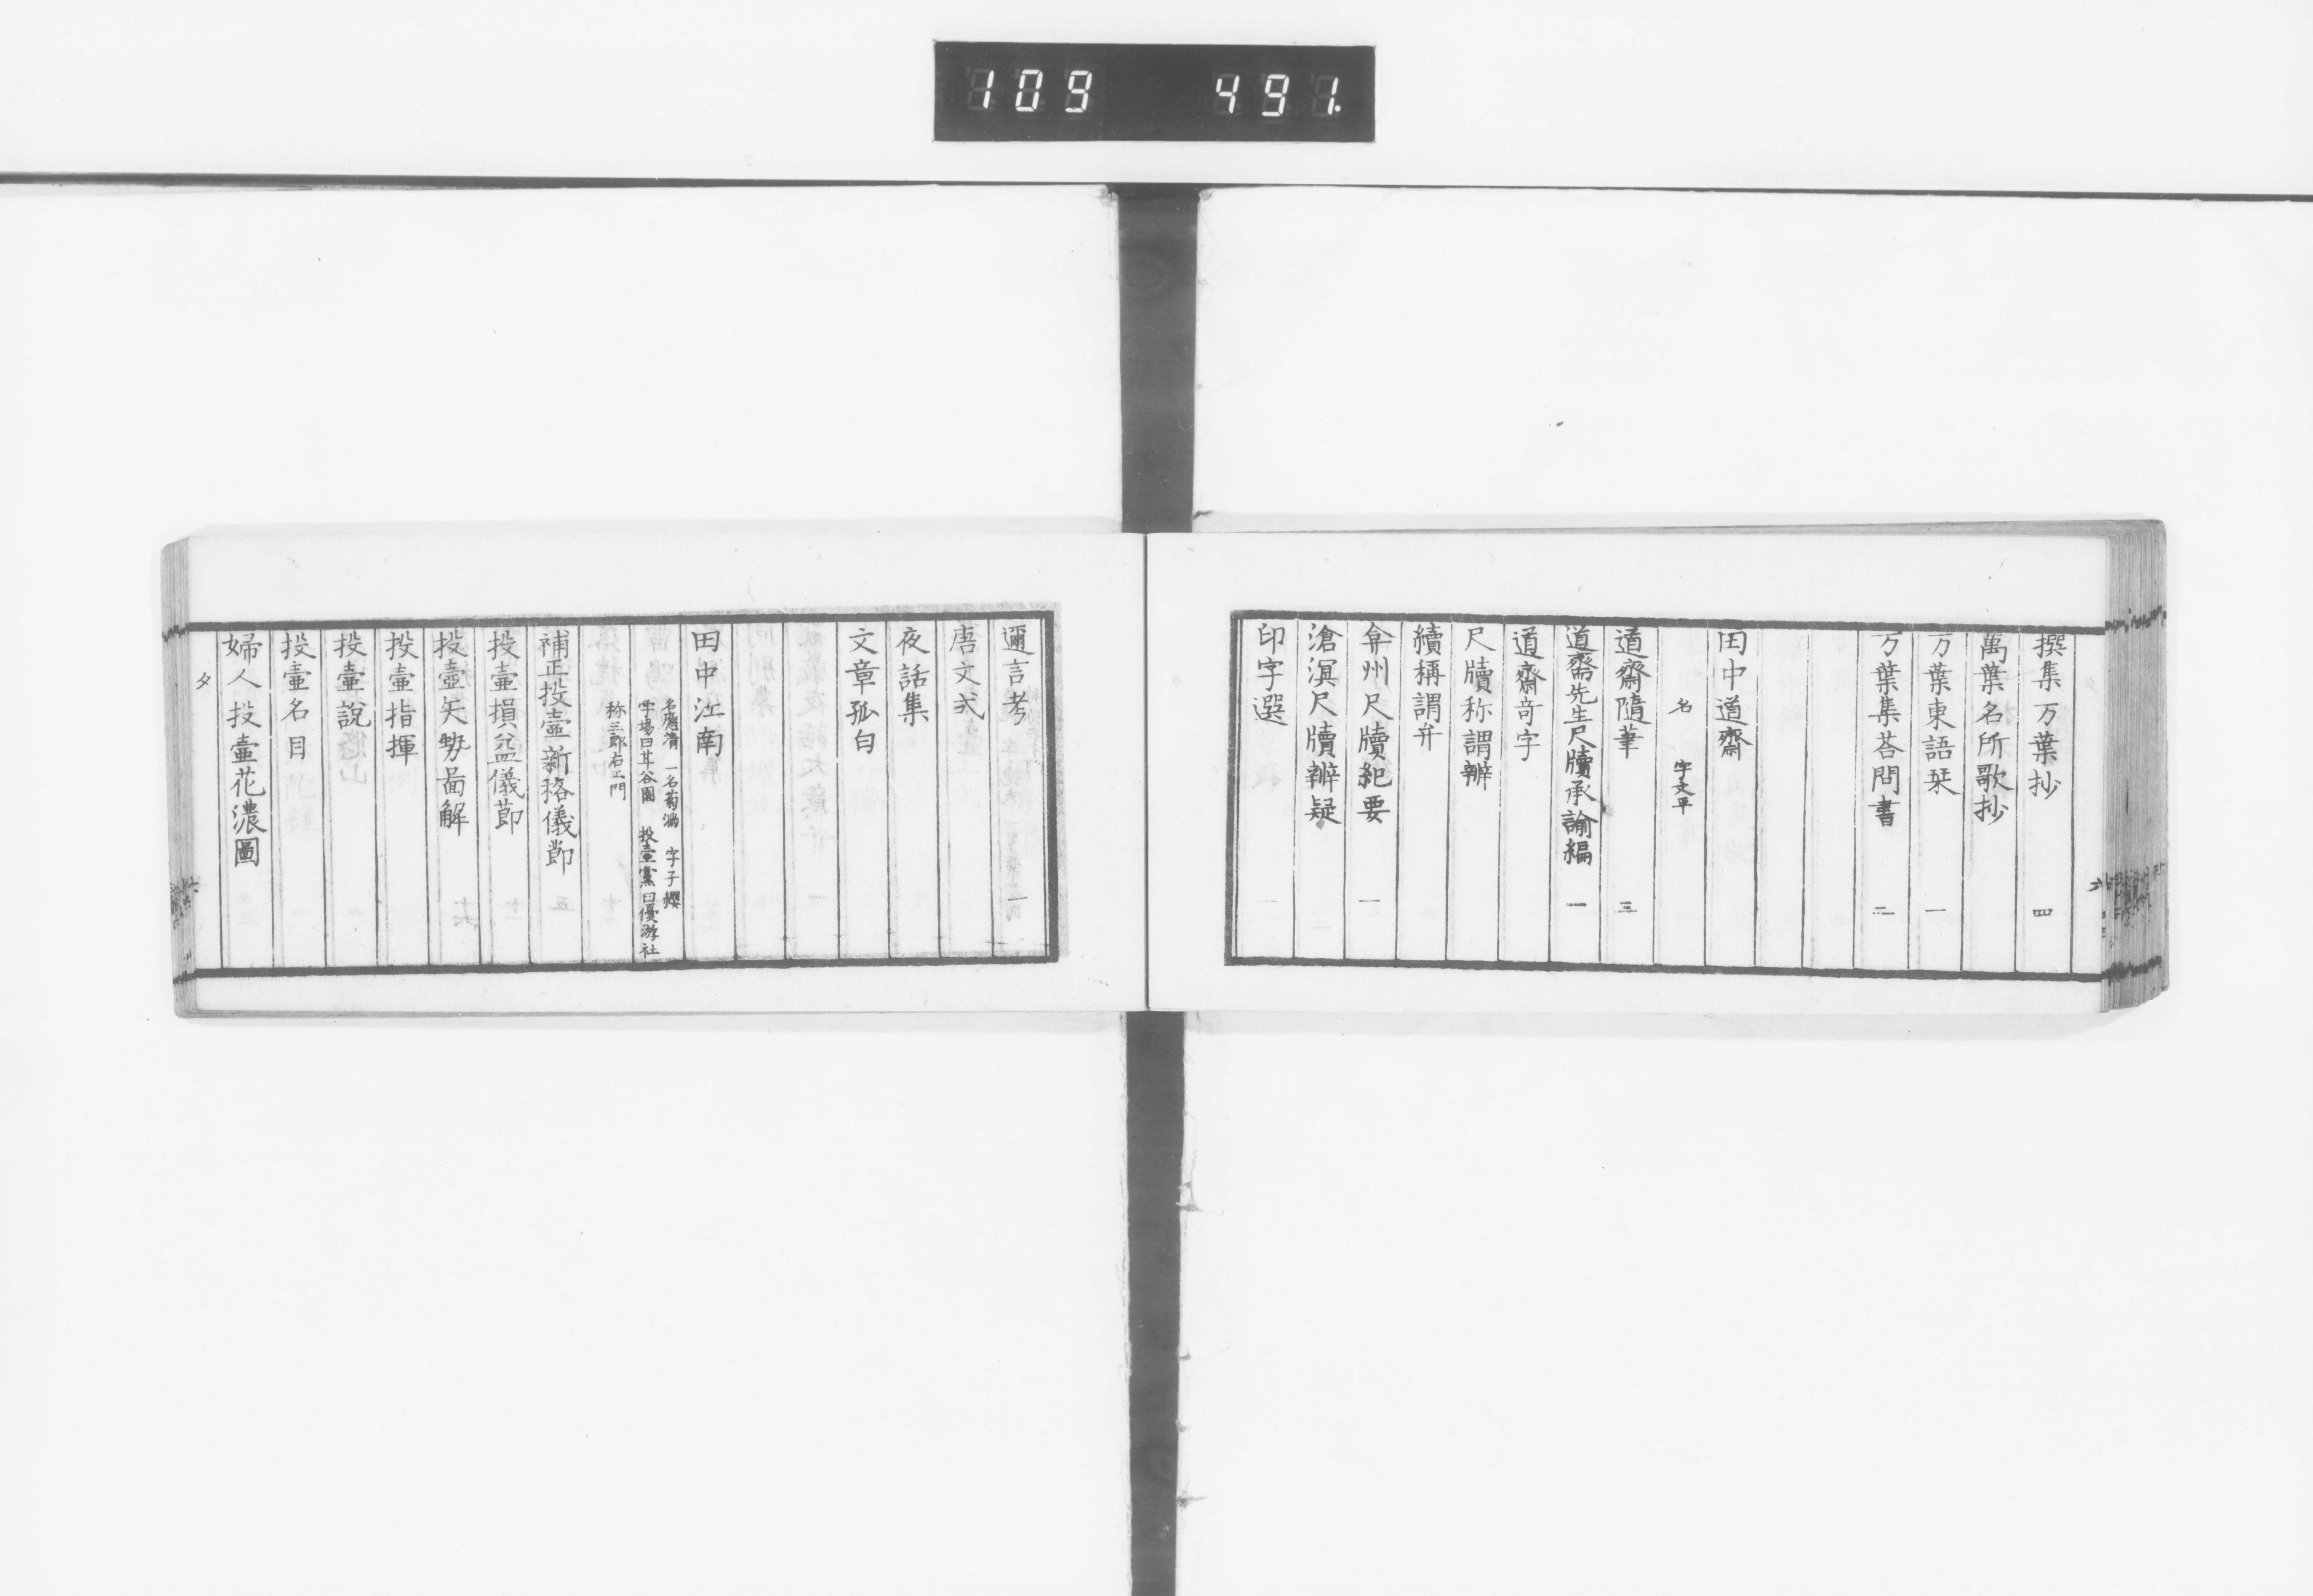 109 491.
撰集万葉抄 四
萬葉名所歌抄
万葉東語栞 一
万葉集荅問書 二
田中道齋
名 字文平
道齋隨筆 三
道齋先生尺牘承諭編 一
道齋奇字
尺牘称謂辨
續稱謂弁
弇州尺牘紀要 一
滄溟尺牘辨疑
印字選 一
邇言考 一
唐文式
夜話集
文章孤白
田中江南
名應清 一名菊満 字子纓
学場曰耳谷園 投壷黨曰優游社
称三郎右エ門
補正投壷新格儀節
投壷損益儀節
投壷矢勢啚解
投壷指揮
投壷說
投壷名目
婦人投壷花濃圖
タ